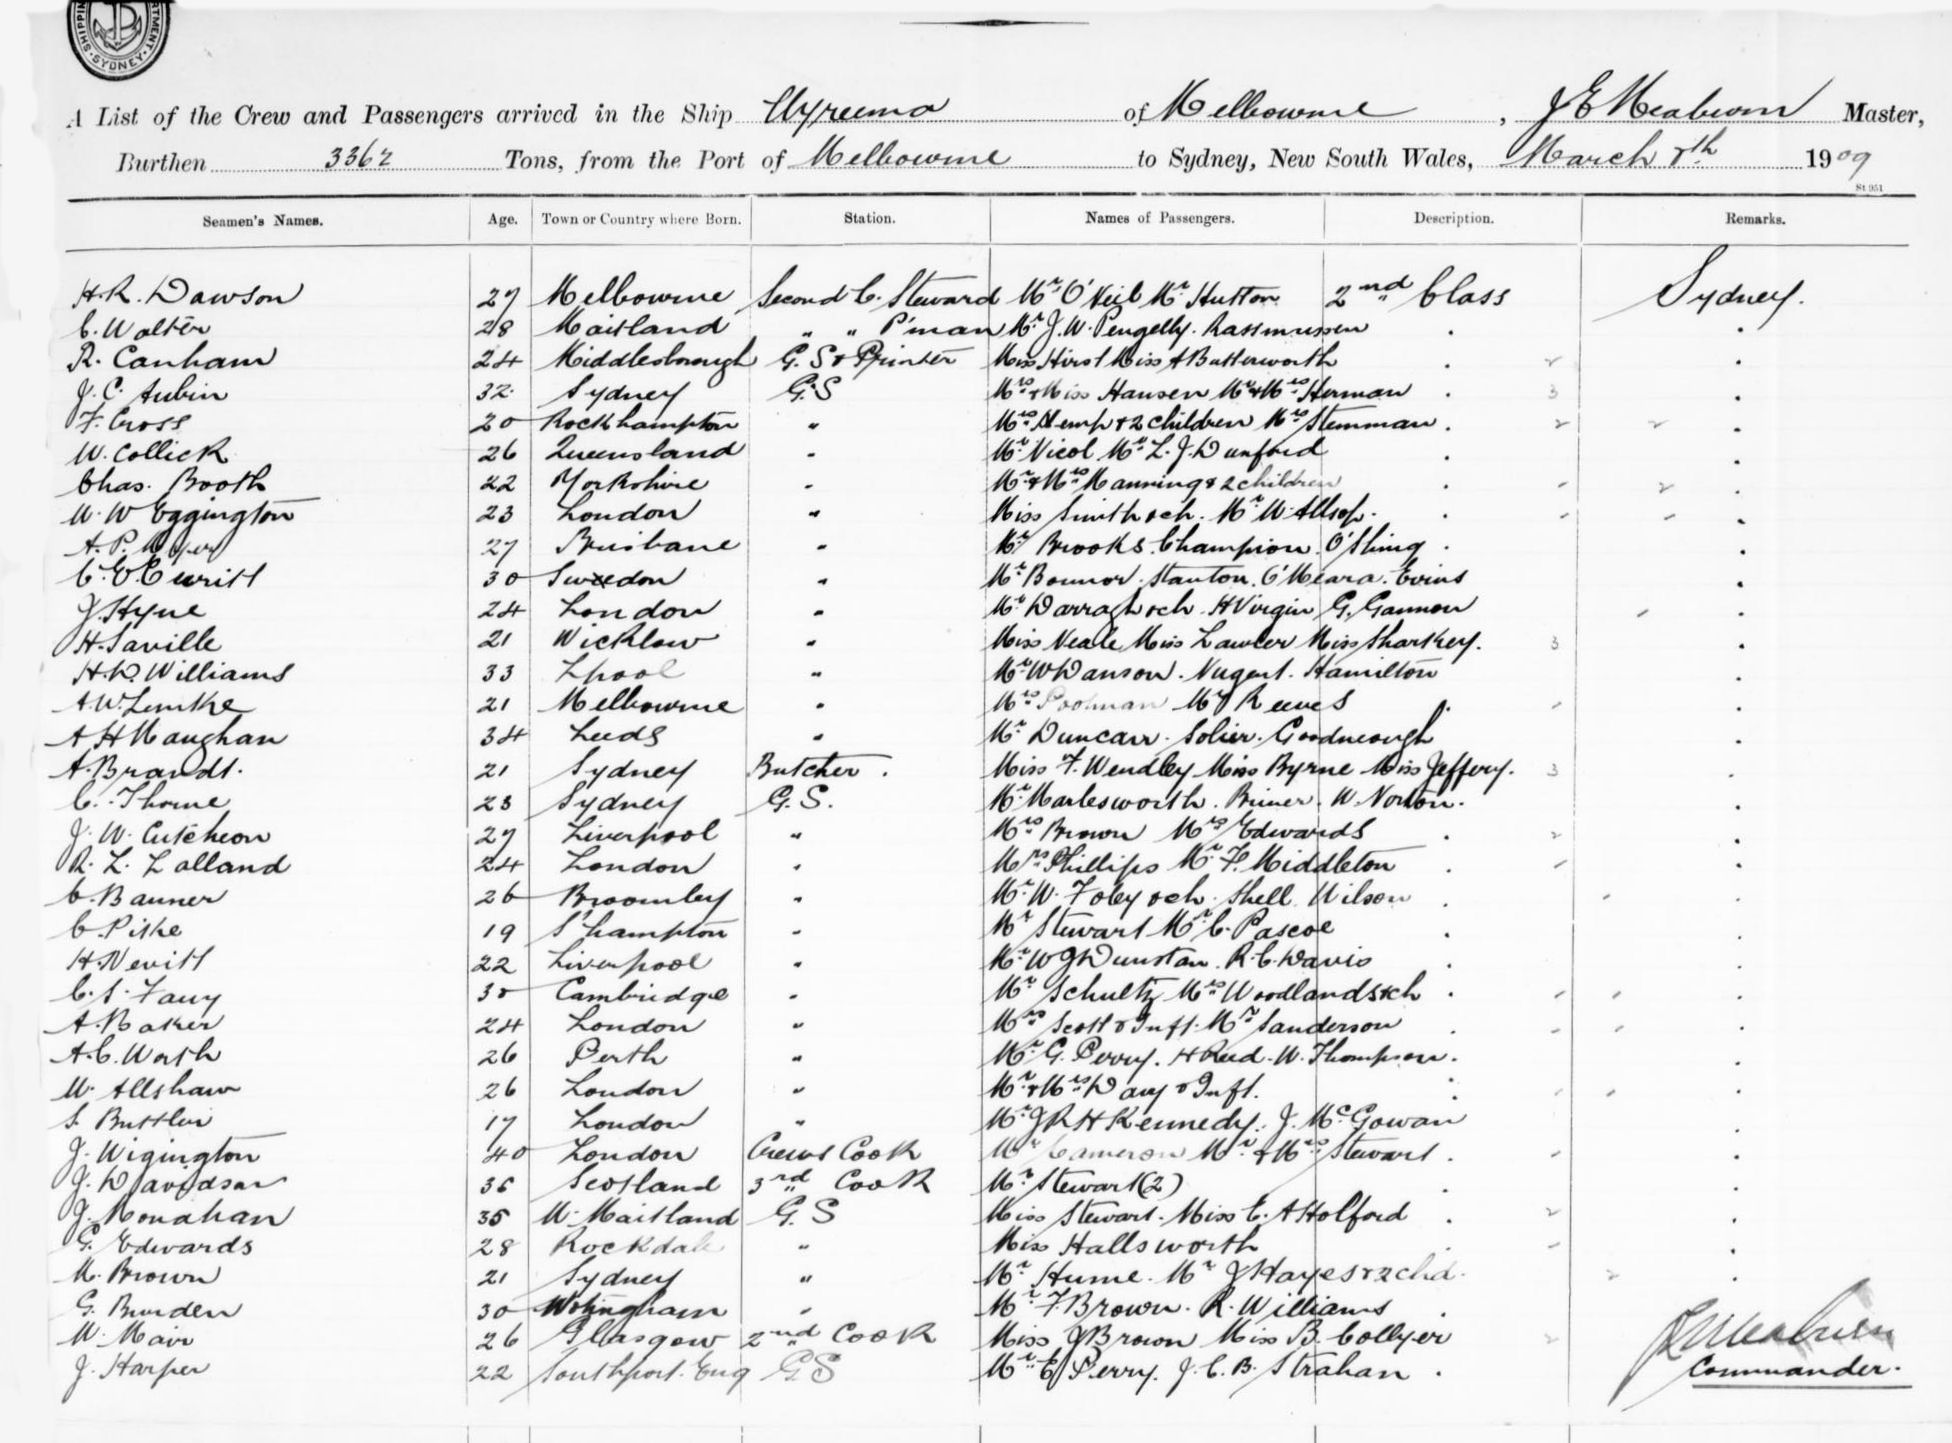 SHIPPING DEPARTMENT SYDNEY
A List of the Crew and Passengers arrived in the Ship Wyreema of Melbourne, J E Meaburn Master,
Burthen 3362 Tons, from the Port of Melbourne to Sydney, New South Wales, March 8th 1909
St 951
Seamen's Names. Age. Town or Country where Born. Station. Names of Passengers. Description. Remarks.
H. R. Dawson 27 Melbourne Second C. Steward Mr O'Neil Mr Hutton 2nd Class Sydney.
C. Walter 28 Maitland " " P'man Mr J. W. Pengelly. Rassmussen
R. Canham 24 Middlesborough G. S & Printer Miss Hirst Miss A Butterworth 2
J. C. Aubin 32 Sydney G.S Mrs & Miss Hansen Mr & Mrs Herman 3
F. Cross 20 Rockhampton " Mrs Hemp & 2 children Mrs Stemman. 2 2
W. Collick 26 Queensland " Mr Nicol Mr L. J. Dunford
Chas. Booth 22 Yorkshire " Mr & Mrs Manning & 2 children - 2
W. W Eggington 23 London " Miss Smith & ch. Mr W. Allsop. - -
A. P. 27 Brisbane " Mr Brooks. Champion. O'Shing
C. E. Ewritt 30 Sweedon " Mr Bonnor. Stanton. O'Meara. Evins
J. Hyne 24 London " Mr Darragh & ch. H Virgin G. Gannon -
H. Saville 21 Wicklow " Miss Neale Miss Lawler Miss Sharkey. 3
H. D. Williams 33 Lpool " Mr W Danson. Nugent. Hamilton
A W. Lemke 21 Melbourne " Mrs Poolman Mr Reeves -
A H Maughan 34 Leeds " Mr Duncan. Solier. Goodneough
A. Brandt. 21 Sydney Butcher. Miss F. Wendley Miss Byrne Miss Jeffery. 3
C. Thorne 23 Sydney G. S. Mr Marlesworth. W. Norton.
J. W. Cutcheon 27 Liverpool " Mrs Brown Mrs Edwards 2
R. L. Lolland 24 London " Mrs Phillips Mr F. Middleton -
C. Banner 26 Broomley " Mr W. Foley & ch. Shell. Wilson -
C. Pike 19 S'hampton " Mr Stewart Mr C. Pascoe
H. Nevitt 22 Liverpool " Mr W J Dunstan. R. C. Davis
C. S. Fauy 30 Cambridge " Mr Schultz Mrs Woodlands & ch - -
A. Baker 24 London " Mrs Scott & Inft. Mr Sanderson - -
A. C. Worth 26 Perth " Mr G. Perry. H Reed. W. Thompson.
W. Allshaw 26 London " Mr & Mrs Davy & Inft. - -
S. Buttler 17 London " Mr J R H Kennedy. J. McGowan
J. Wigington 40 London Crews Cook Mr Cameron Mr & Mrs Stewart. -
J. Davidson 36 Scotland 3rd Cook Mr Stewart (2)
J. Monahan 35 W. Maitland G. S Miss Stewart. Miss E. A Holford 2
G. Edwards 28 Rockdale " Miss Hallsworth -
M. Brown 21 Sydney " Mr Hume. Mr J Hayes & 2 chd. 2
G. Burden 30 Wokingham " Mr F. Brown. R. Williams
W. Mair 26 Glasgow 2nd Cook Miss J Brown Miss B. Collyer 2
J. Harper 22 Southport. Eng G S Mr E Perry. J. C. B. Strahan
J E Meaburn
Commander.